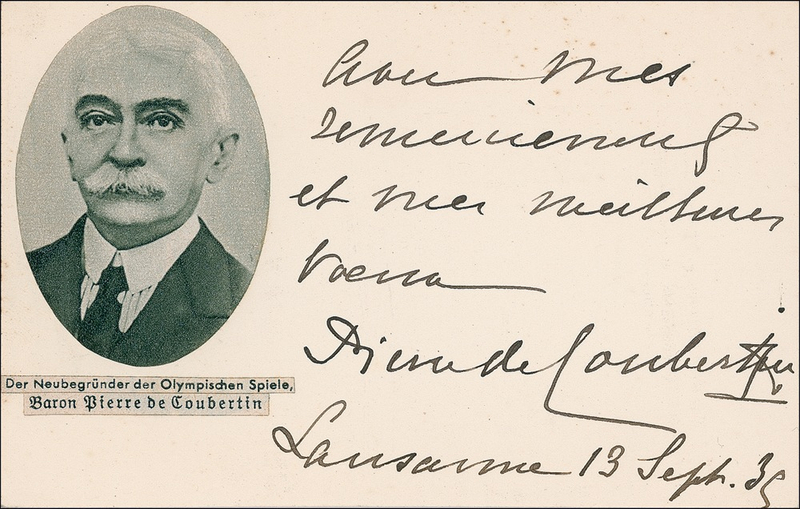 Der Neubegründer der Olympischen Spiele,
Baron Pierre de Coubertin
mes
remerciements
et mes meilleurs
voeux
Pierre de Coubertin
Lausanne 13 Sept. 35